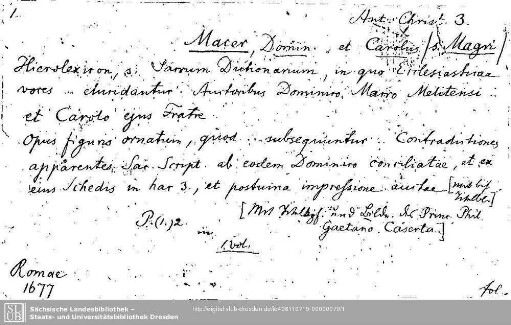 1.
Ant. Christ. 3.
Macer, Domin. et Carolus /s. Magri/
Hierolexicon, s. Sacrum Dictionarium, in quo Ecclesiasticae
voces elucidantur. Auctoribus Dominico Macro Melitensi
et Carolo ejus Fratre.
Opus figuris ornatum, quod subsequuntur Contradictiones
apparentes Sac. Script. ab eodem Dominico conciliatae, et ex
eius Schedis in hac 3. et postuma impressione auctae
P. (1.) 2
[Mit und Bildn. Princ. Phil.
Gaetano. Caserta.]
in 1 vol.
Romae
1677
fol.
SLUB
Sächsische Landesbibliothek –
Staats- und Universitätsbibliothek Dresden